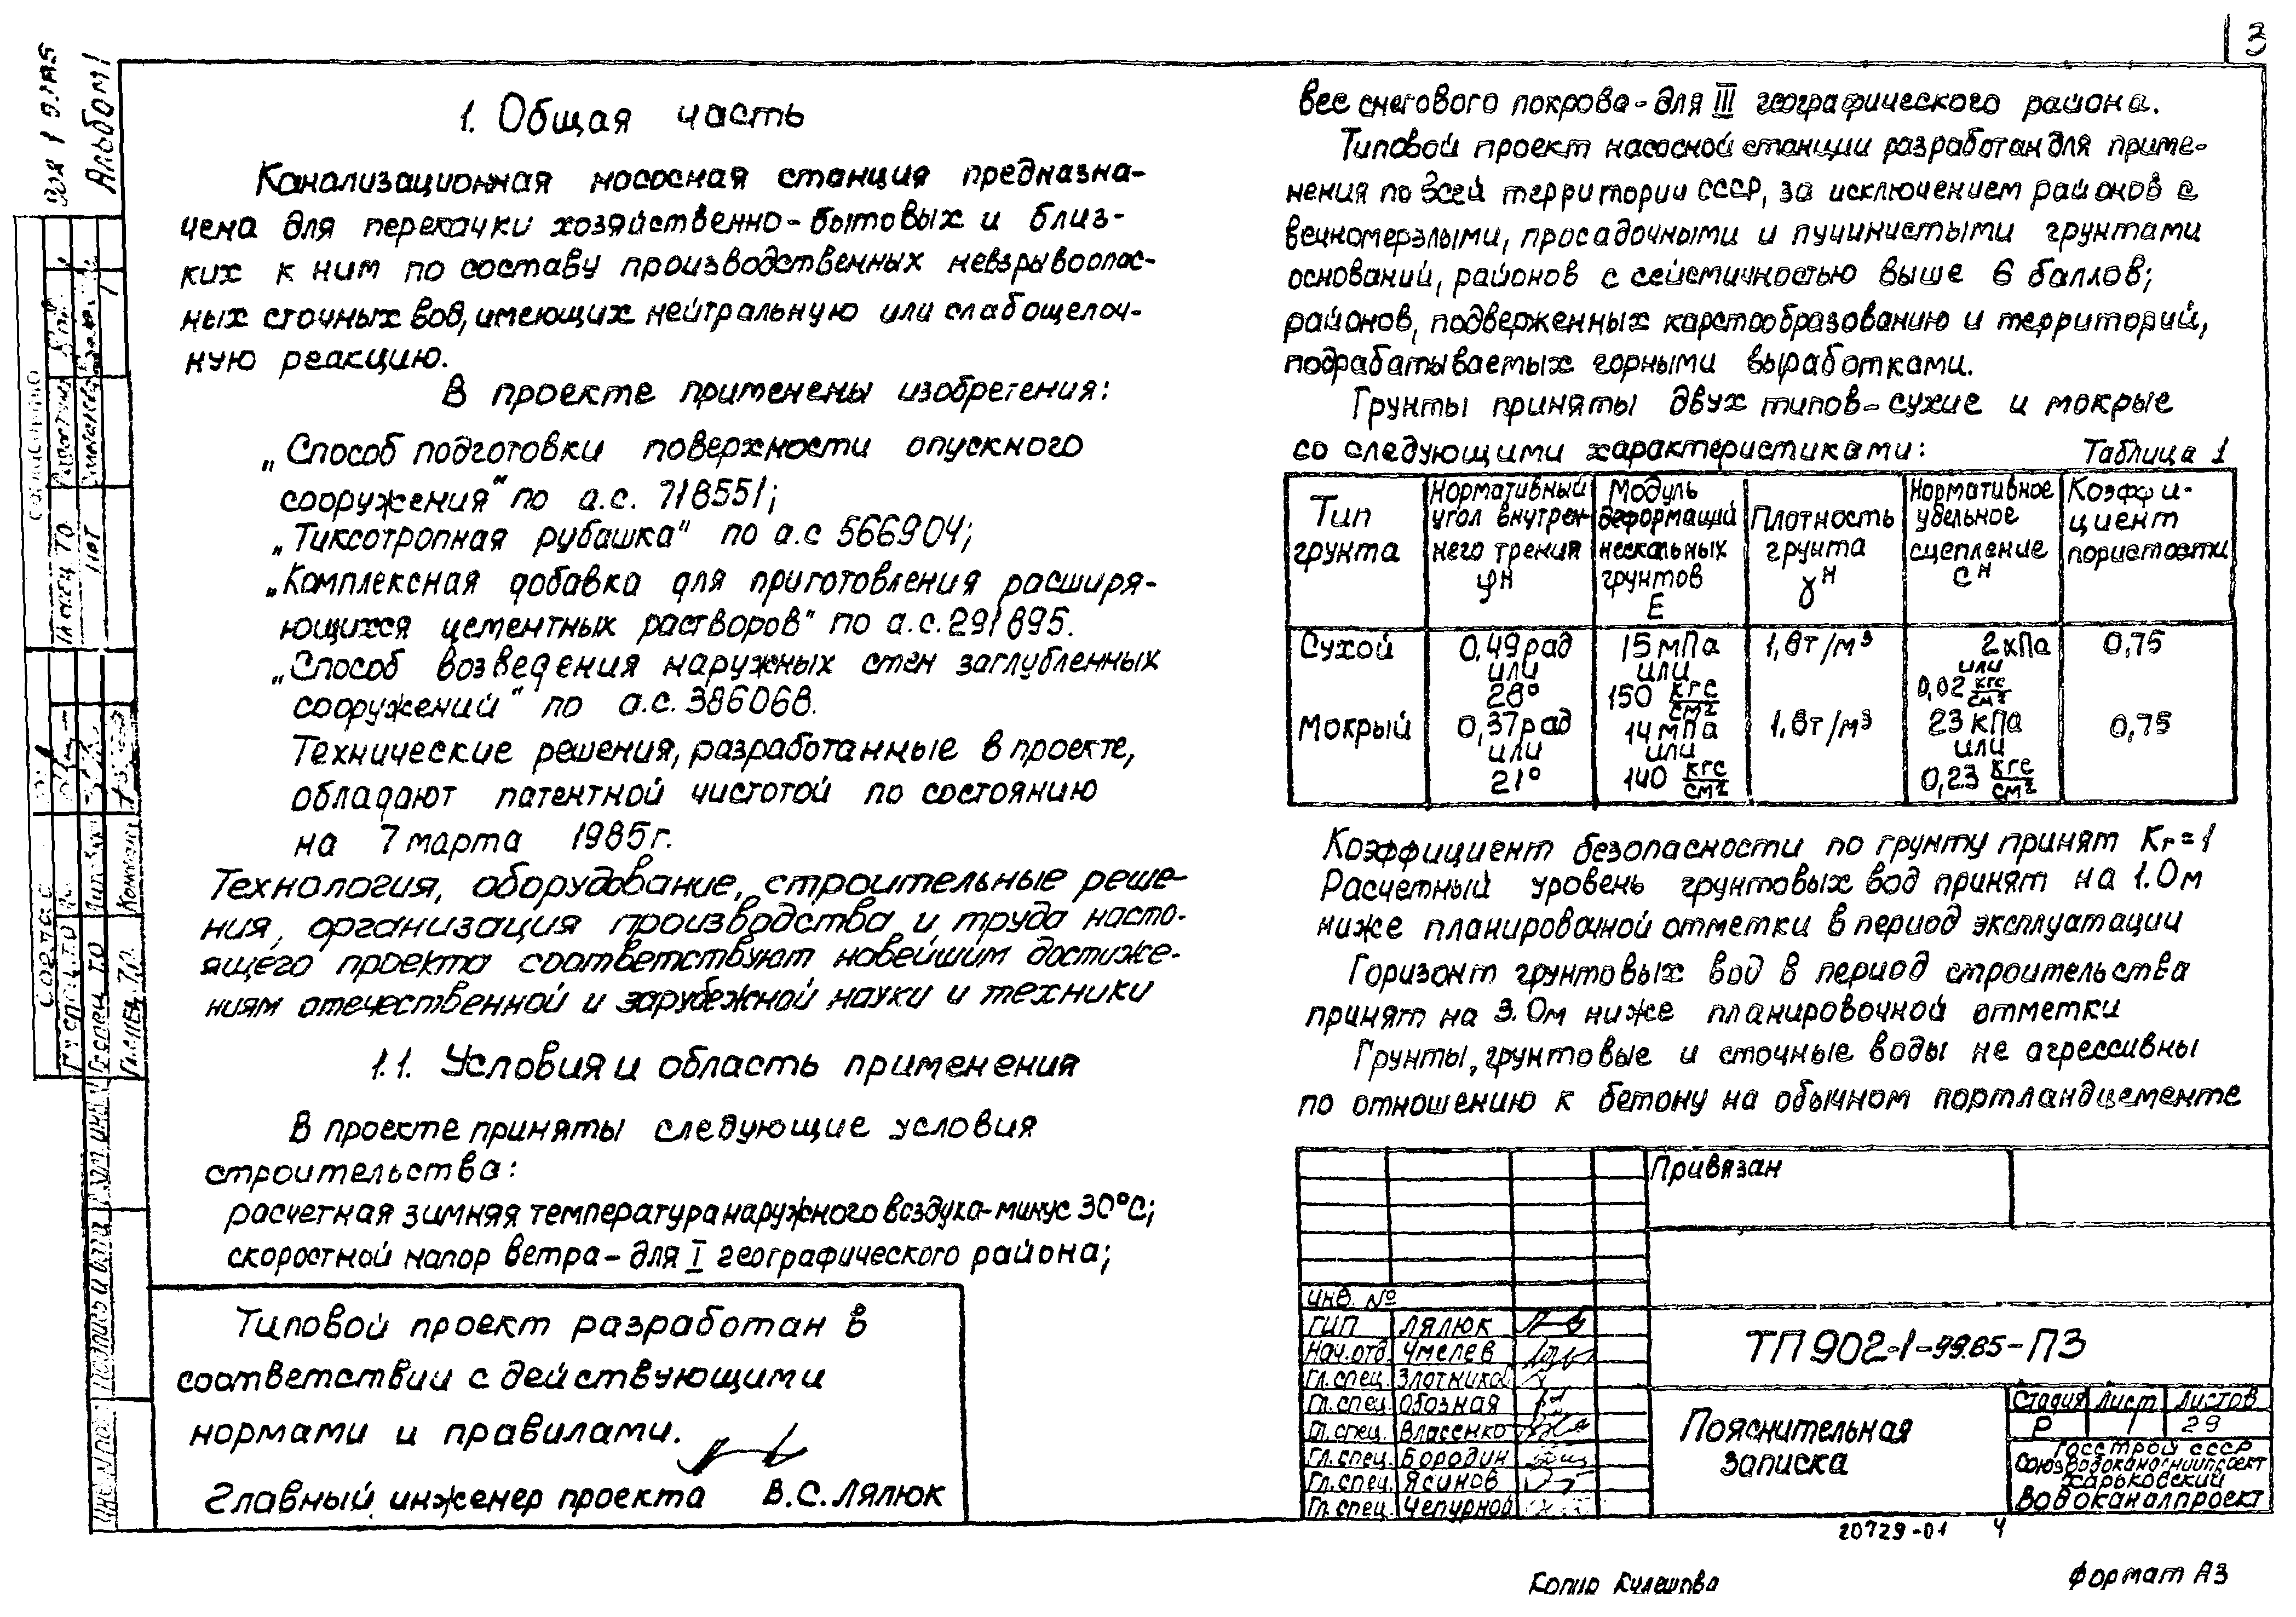 3
Альбом 1
1. Общая часть
Канализационная насосная станция предназна-
чена для перекачки хозяйственно-бытовых и близ-
ких к ним по составу производственных невзрывоопас-
ных сточных вод, имеющих нейтральную или слабощелоч-
ную реакцию.
В проекте применены изобретения:
„Способ подготовки поверхности опускного
сооружения" по а.с. 718551;
„Тиксотропная рубашка" по а.с 566904;
„Комплексная добавка для приготовления расширя-
ющихся цементных растворов" по а.с. 291895.
„Способ возведения наружных стен заглубленных
сооружений" по а.с. 386068.
Технические решения, разработанные в проекте,
обладают патентной чистотой по состоянию
на 7 марта 1985г.
Технология, оборудование, строительные реше-
ния, организация производства и труда насто-
ящего проекта соответствуют новейшим достиже-
ниям отечественной и зарубежной науки и техники
1.1. Условия и область применения
В проекте приняты следующие условия
строительства:
расчетная зимняя температура наружного воздуха-минус 30°С;
скоростной напор ветра-для I географического района;
Типовой проект разработан в
соответствии с действующими
нормами и правилами.
Главный инженер проекта В.С.Лялюк
вес снегового покрова-для III географического района.
Типовой проект насосной станции разработан для приме-
нения по всей территории СССР, за исключением районов с
вечномерзлыми, просадочными и пучинистыми грунтами
оснований, районов с сейсмичностью выше 6 баллов;
районов, подверженных карстообразованию и территорий,
подрабатываемых горными выработками.
Грунты приняты двух типов-сухие и мокрые
со следующими характеристиками:
Таблица 1
Тип грунта
Нормативный угол внутрен- него трения φᴴ
Модуль деформаций нескальных грунтов E
Плотность грунта γᴴ
Нормативное удельное сцепление сᴴ
Коэффи- циент пористости
Сухой 0,49 рад или 28° 15 мПа или 150 кгс/см² 1,8т/м³ 2 кПа или 0,02 кгс/см² 0,75
Мокрый 0,37 рад или 21° 14 мПа или 140 кгс/см² 1.8т/м³ 23 кПа или 0,23 кгс/см² 0,75
Коэффициент безопасности по грунту принят Кг=1
Расчетный уровень грунтовых вод принят на 1.0м
ниже планировочной отметки в период эксплуатации
Горизонт грунтовых вод в период строительства
принят на 3.0м ниже планировочной отметки
Грунты, грунтовые и сточные воды не агрессивны
по отношению к бетону на обычном портландцементе
Привязан
Инв. №
ГИП Лялюк
Нач.отд. Чмелев
Гл.спец. Злотников
Гл.спец. Обозная
Гл.спец. Власенко
Гл.спец. Бородин
Гл.спец. Ясинов
Гл.спец. Чепурнов
ТП 902-1-99.85-ПЗ
Пояснительная
записка
Стадия Лист Листов
Р 1 29
Госстрой СССР
Союзводоканалниипроект
Харьковский
Водоканалпроект
20729-01 4
Копир Кулешова
Формат А3